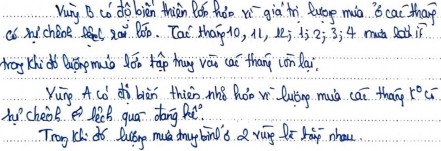 Vùng B có độ biến thiên lớn hơn vì giá trị lượng mưa ở các tháng
có sự chênh lệch rất lớn. Các tháng 10, 11, 12, 1, 2, 3, 4 mưa rất ít
trong khi đó lượng mưa lớn tập trung vào các tháng còn lại.
Vùng A có độ biến thiên nhỏ hơn vì lượng mưa các tháng ko có
sự chênh lệch quá đáng kể.
Trong khi đó lượng mưa trung bình ở 2 vùng là bằng nhau.